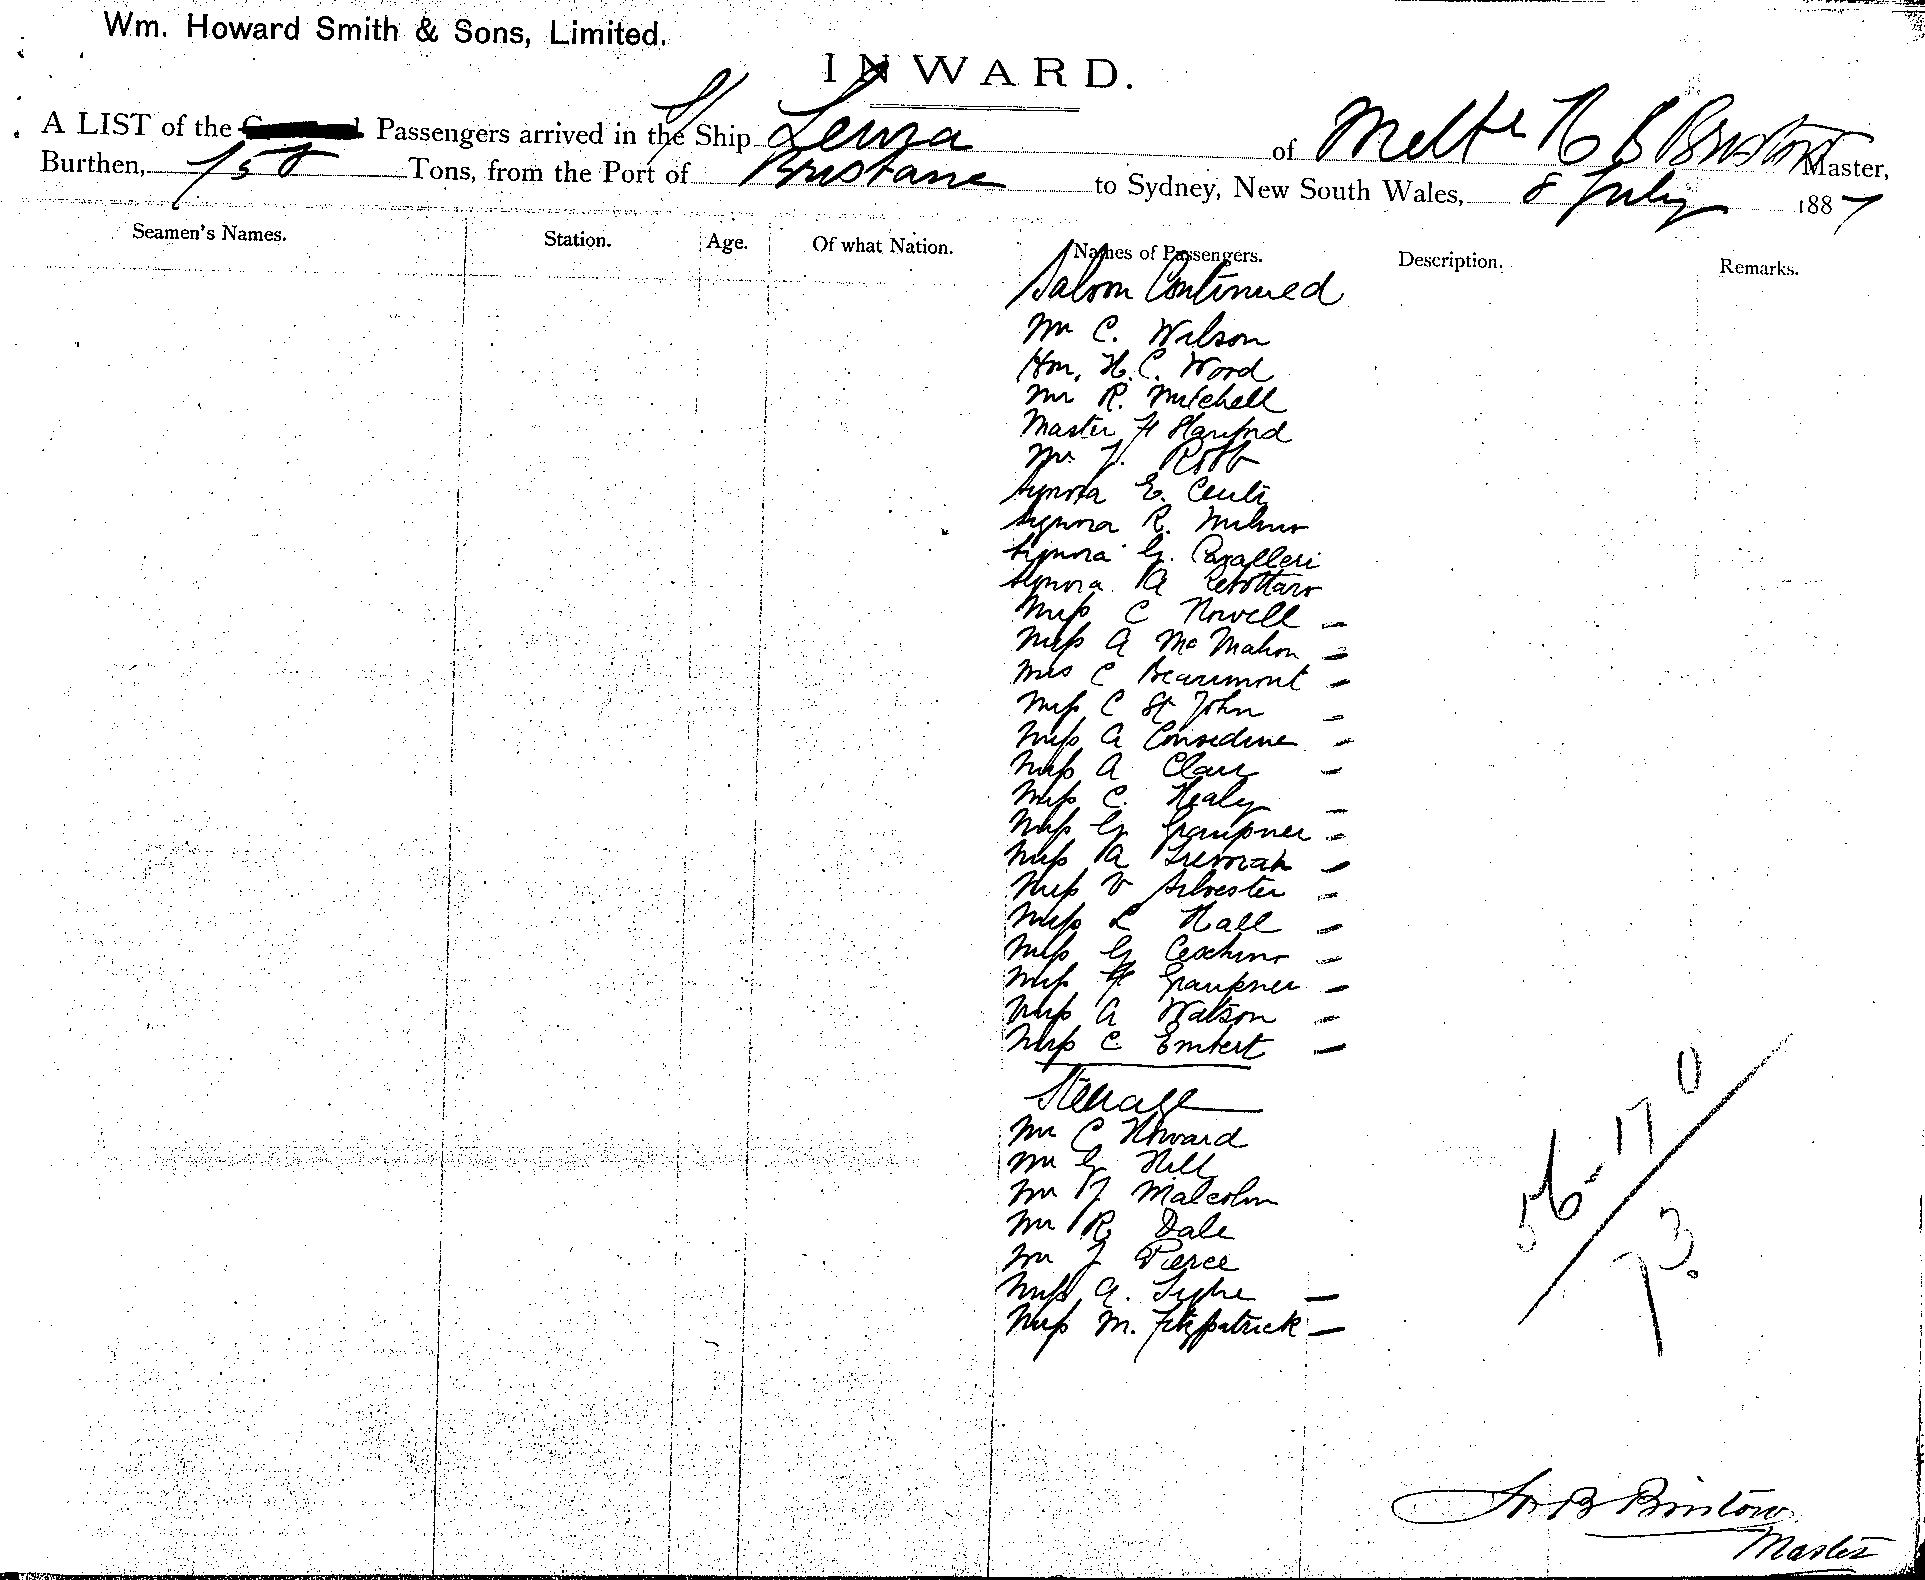 Wm. Howard Smith & Sons, Limited.
INWARD.
A LIST of the Passengers arrived in the S/ Ship Leura of Melbe Master,
Burthen, Tons, from the Port of Brisbane to Sydney, New South Wales, 8 July 1887
Seamen's Names. Station. Age. Of what Nation. Names of Passengers. Description. Remarks.
Saloon Continued
Mr C. Wilson
Hon. H. C. Wood
Mr R. Mitchell
Master H Hanford
Mr J. Robb
Signora E. Centi
Signora R.
Signora G. Cavalleri
Signora A
Miss C Nowell -
Miss A McMahon -
Mrs C Beaumont -
Miss C St John -
Miss A Considine -
Miss A Clair -
Miss C. Healy -
Miss G Graupner -
Miss A -
Miss V Silvester -
Miss L Hall -
Miss G Ceschino -
Miss H Graupner -
Miss A Watson -
Miss C Embert -
Steerage
Mr C Howard
Mr G Hill
Mr J Malcolm
Mr R Dale
Mr J Pierce
Miss A. Tighe -
Miss M. Fitzpatrick -
56-17 0
73.
B Bristow
Master